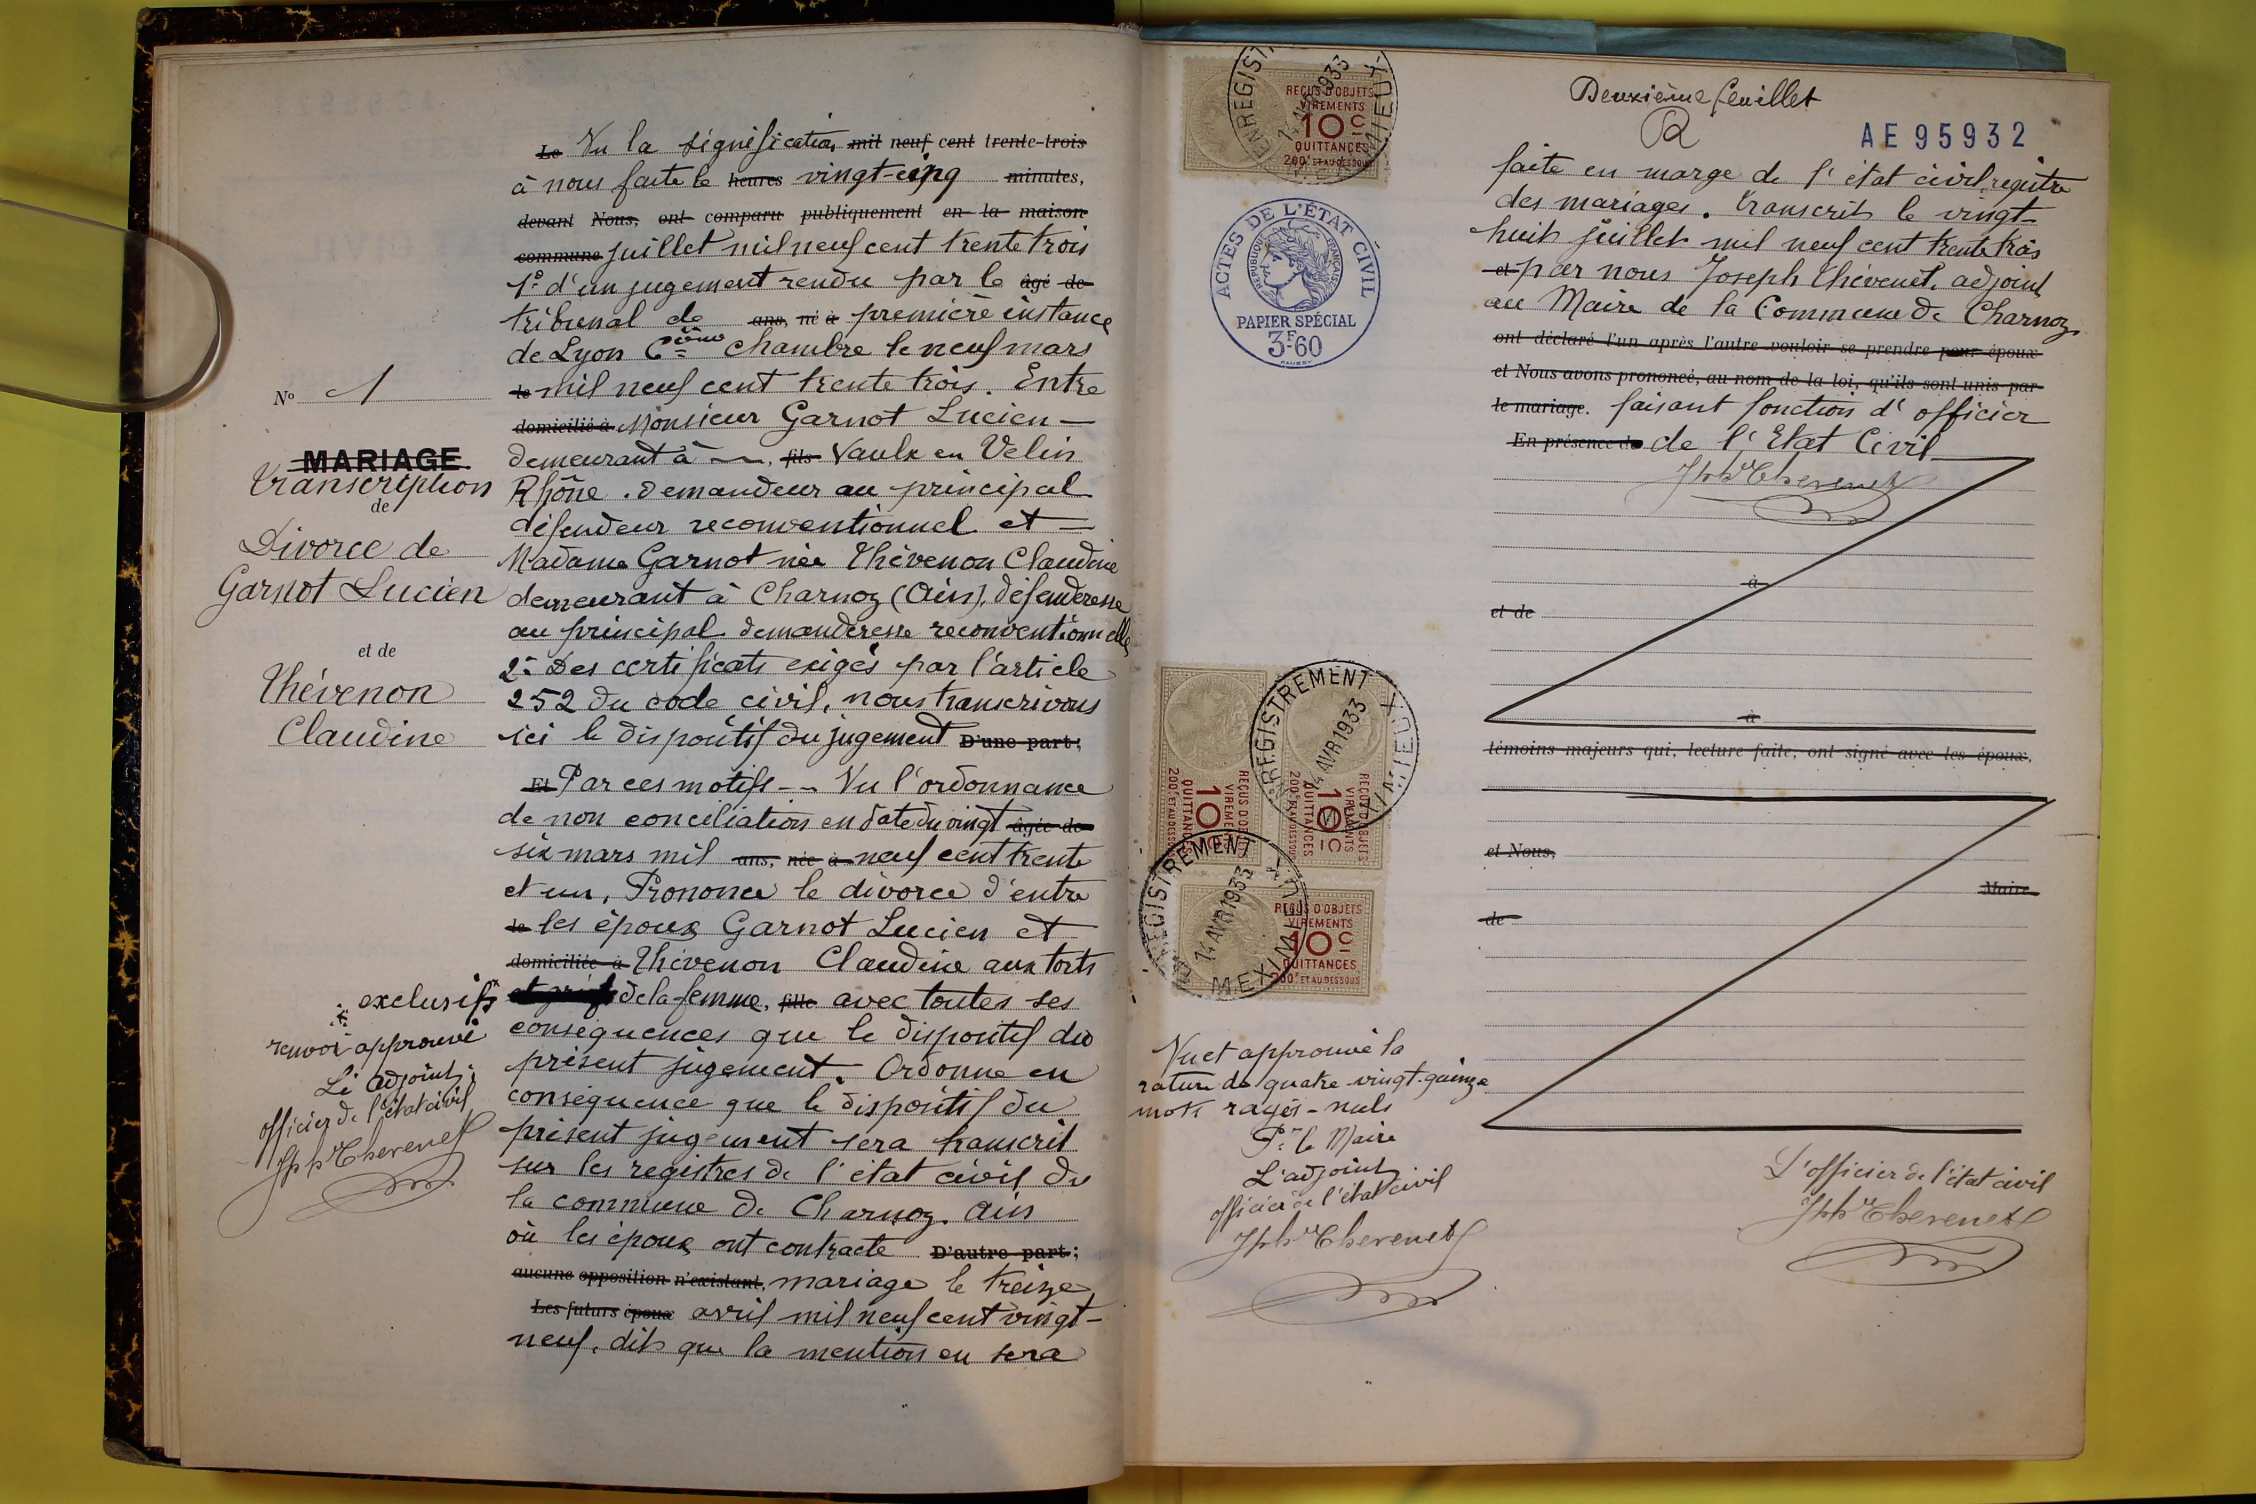 Le Vu la signification mil neuf cent trente-trois
à nous faite le heures vingt-cinq minutes,
devant Nous, ont comparu publiquement en la maison
commune juillet mil neuf cent trente trois
1º d'un jugement rendu par le âgé de
tribunal de ans, né à première instance
de Lyon 6ème Chambre le neuf mars
le mil neuf cent trente trois. Entre
domicilié à Monsieur Garnot Lucien —
demeurant à —, fils Vaulx en Velin
Rhône. demandeur au principal
défendeur reconventionnel et —
Madame Garnot née Thévenon Claudine
demeurant à Charnoz (Ain), défenderesse
au principal demanderesse reconventionnelle
2º Des certificats exigés par l'article
252 du code civil, nous transcrivons
ici le dispositif du jugement D'une part;
Et Par ces motifs -- Vu l'ordonnance
de non conciliation en date du vingt âgée de
six mars mil ans, née à neuf cent trente
et un, Prononce le divorce d'entre
le les époux Garnot Lucien et
domiciliée à Thévenon Claudine aux torts
de la femme, fille avec toutes ses
conséquences que le dispositif du
présent jugement. Ordonne en
conséquence que le dispositif du
présent jugement sera transcrit
sur les registres de l'état civil de
la commune de Charnoz. Ain
où les époux ont contracté D'autre part;
aucune opposition n'existant, mariage le treize
Les futurs époux avril mil neuf cent vingt-
neuf, dit que la mention en sera
Nº 1
MARIAGE
Transcription
de
Divorce de
Garnot Lucien
et de
Thévenon
Claudine
exclusifs
renvoi approuvé
Le adjoint
officier de l'état civil
Jph Thevenet
Deuxième feuillet
AE 95932
faite en marge de l'état civil, registre
des mariages. Transcrit le vingt-
huit juillet mil neuf cent trente trois
et par nous Joseph Thévenet, adjoint
au Maire de la Commune de Charnoz
ont déclaré l'un après l'autre vouloir se prendre pour époux
et Nous avons prononcé, au nom de la loi, qu'ils sont unis par
le mariage. faisant fonction d'officier
En présence de de l'Etat Civil
Jph Thevenet
à
et de
à
témoins majeurs qui, lecture faite, ont signé avec les époux,
et Nous,
Maire
de
L'officier de l'état civil
Jph Thevenet
ENREGISTREMENT
14 AVR 1933
MEXIMIEUX
REÇUS D'OBJETS
VIREMENTS
10C
QUITTANCES
200F ET AU DESSOUS
ACTES DE L'ÉTAT CIVIL
RÉPUBLIQUE FRANÇAISE
PAPIER SPÉCIAL
3F60
ENREGISTREMENT
14 AVR 1933
MEXIMIEUX
REÇUS D'OBJETS
VIREMENTS
10C
QUITTANCES
200F ET AU DESSOUS
REÇUS D'OBJETS
VIREMENTS
10C
QUITTANCES
200F ET AU DESSOUS
ENREGISTREMENT
14 AVR 1933
MEXIMIEUX
REÇUS D'OBJETS
VIREMENTS
10C
QUITTANCES
200F ET AU DESSOUS
Vu et approuvé la
rature de quatre-vingt-quinze
mots rayés-nuls
Pr le Maire
L'adjoint
officier de l'état civil
Jph Thevenet